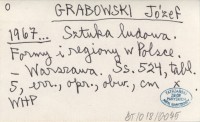 O
GRABOWSKI Józef
1967... Sztuka ludowa.
Formy i regiony w Polsce.
- Warszawa. Ss. 524, tabl.
5, err., opr., obw., cm x.
WHP